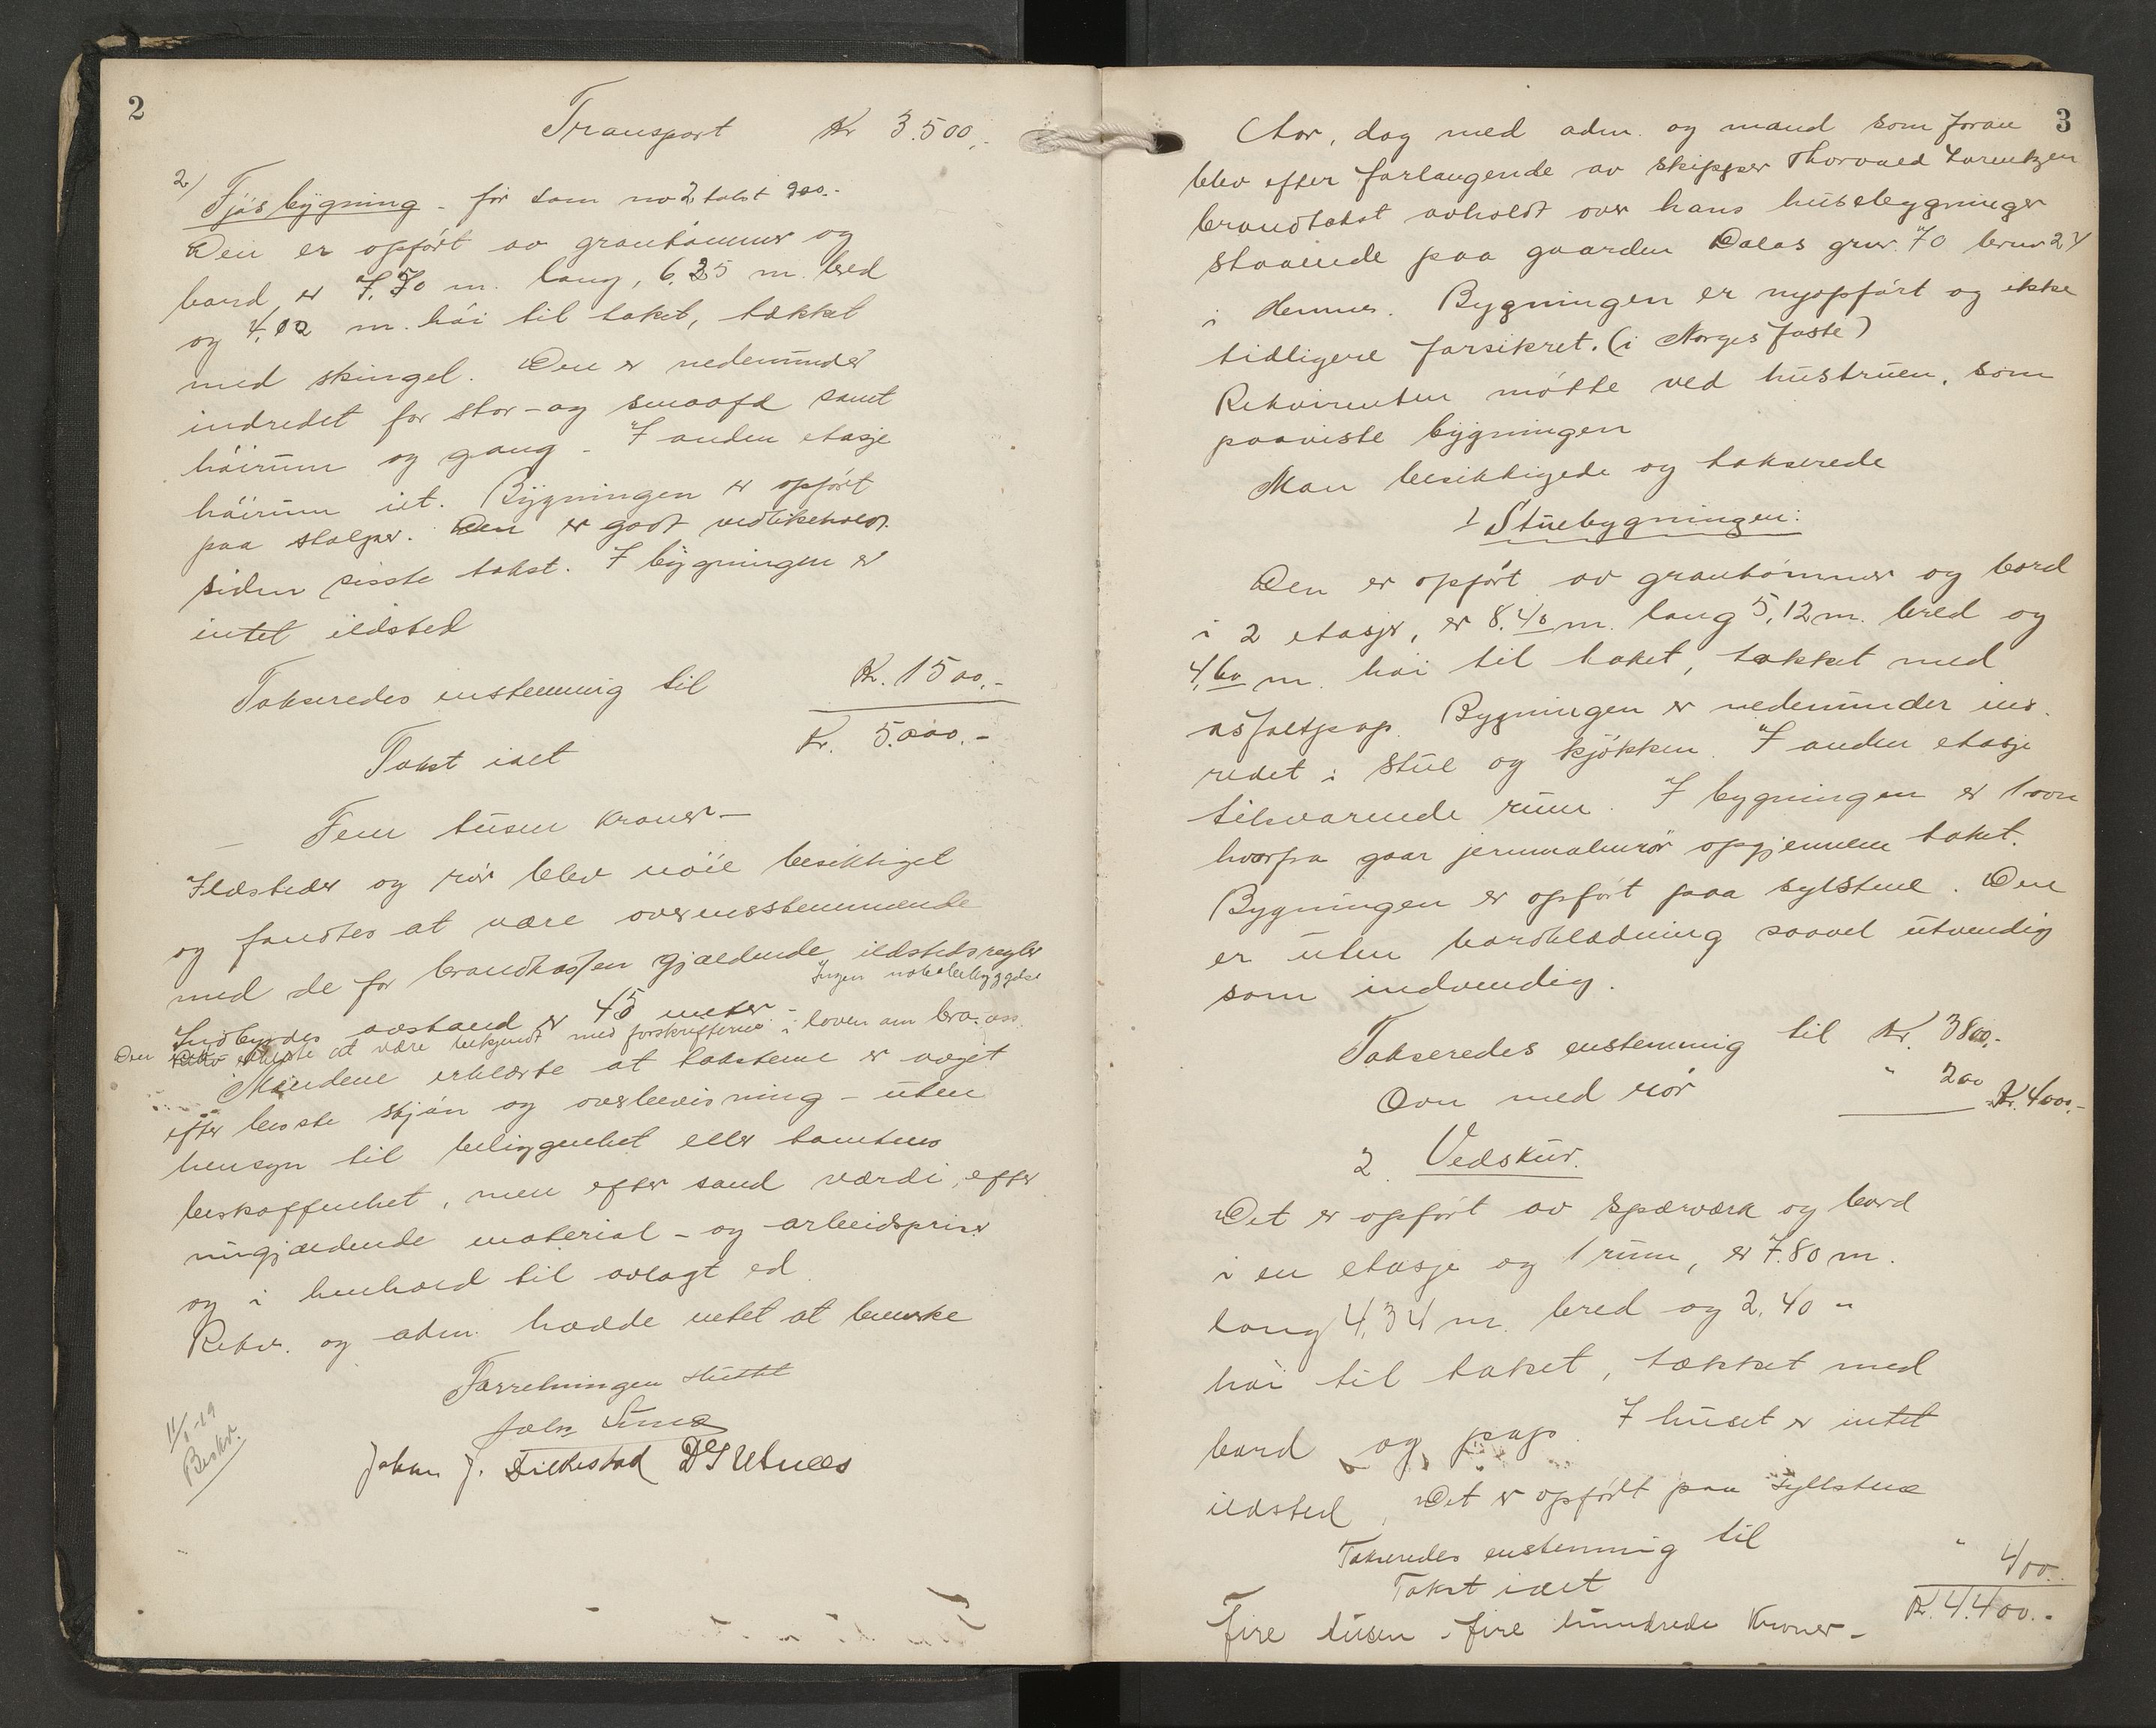 2
Transport Kr 3.500,-
2/ Fjøsbygning - før som no 2 takst 900.-
Den er opført av grantømmer og
bord, er 7,70 m. lang, 6,35 m. bred
og 4,02 m. høi til taket, tækket
med skingel. Den er nedenunder
indredet for stor- og smaafæ samt
høirum og gang - I anden etasje
høirum iet. Bygningen er opført
paa stolper. Den er godt vedlikeholdt
siden sisste takst. I bygningen er
intet ildsted
Takseredes enstemmig til Kr. 1500,-
Takst ialt Kr. 5.000.-
Fem tusen kroner -
Ildsteder og rør blev nøie besiktiget
og fandtes at være overensstemmende
med de for brandkassen gjældende ildstedsregler
Ingen nabobebyggelse
Indbyrdes avstand er 45 meter -
Den at være bekjendt med forskrifterne i loven om bra. ass.
Mændene erklærte at taksterne er avgit
efter besste skjøn og overbevisning - uten
hensyn til beliggenhet eller tomtens
beskaffenhet, men efter sand værdi, efter
nugjældende material- og arbeidspriser
og i henhold til avlagt ed.
Rekv. og adm. hadde intet at bemerke
Forretningen sluttet
Johan J.
11/1-19
Beskr.
3
Aar, dag med adm. og mænd som foran
blev efter forlangende av skipper Thorvald Lorentzen
brandtakst avholdt over hans husebygninger
staaende paa gaarden Dalos grnr. 70 brnr 24
i Hemnes. Bygningen er nyopført og ikke
tidligere forsikret. (i Norges faste)
Rekvirenten møtte ved hustruen, som
paaviste bygningen
Man besiktigede og takserede
1 Stuebygningen:
Den er opført av grantømmer og bord
i 2 etasjer, er 8.40 m. lang 5,12 m. bred og
4,60 m. høi til taket, tækket med
asfaltpap. Bygningen er nedenunder ind-
redet i stue og kjøkken. I anden etasje
tilsvarende rum. I bygningen er 1 ovn
hvorfra gaar jernmalmrør opgjennem taket.
Bygningen er opført paa sylstene. Den
er uten bordklædning saavel utvendig
som indvendig.
Takseredes enstemmig til Kr. 3800,-
Ovn med rør " 200 Kr. 4000,-
2 Vedskur.
Det er opført av spærværk og bord
i en etasje og 1 rum, er 7.80 m.
lang 4,34 m. bred og 2,40 "
høi til taket, tækket med
bord og pap. I huset er intet
ildsted. Det er opført paa syllstene
Takseredes enstemmig til " 400.
Takst ialt Kr. 4.400.-
Fire tusen fire hundrede kroner -